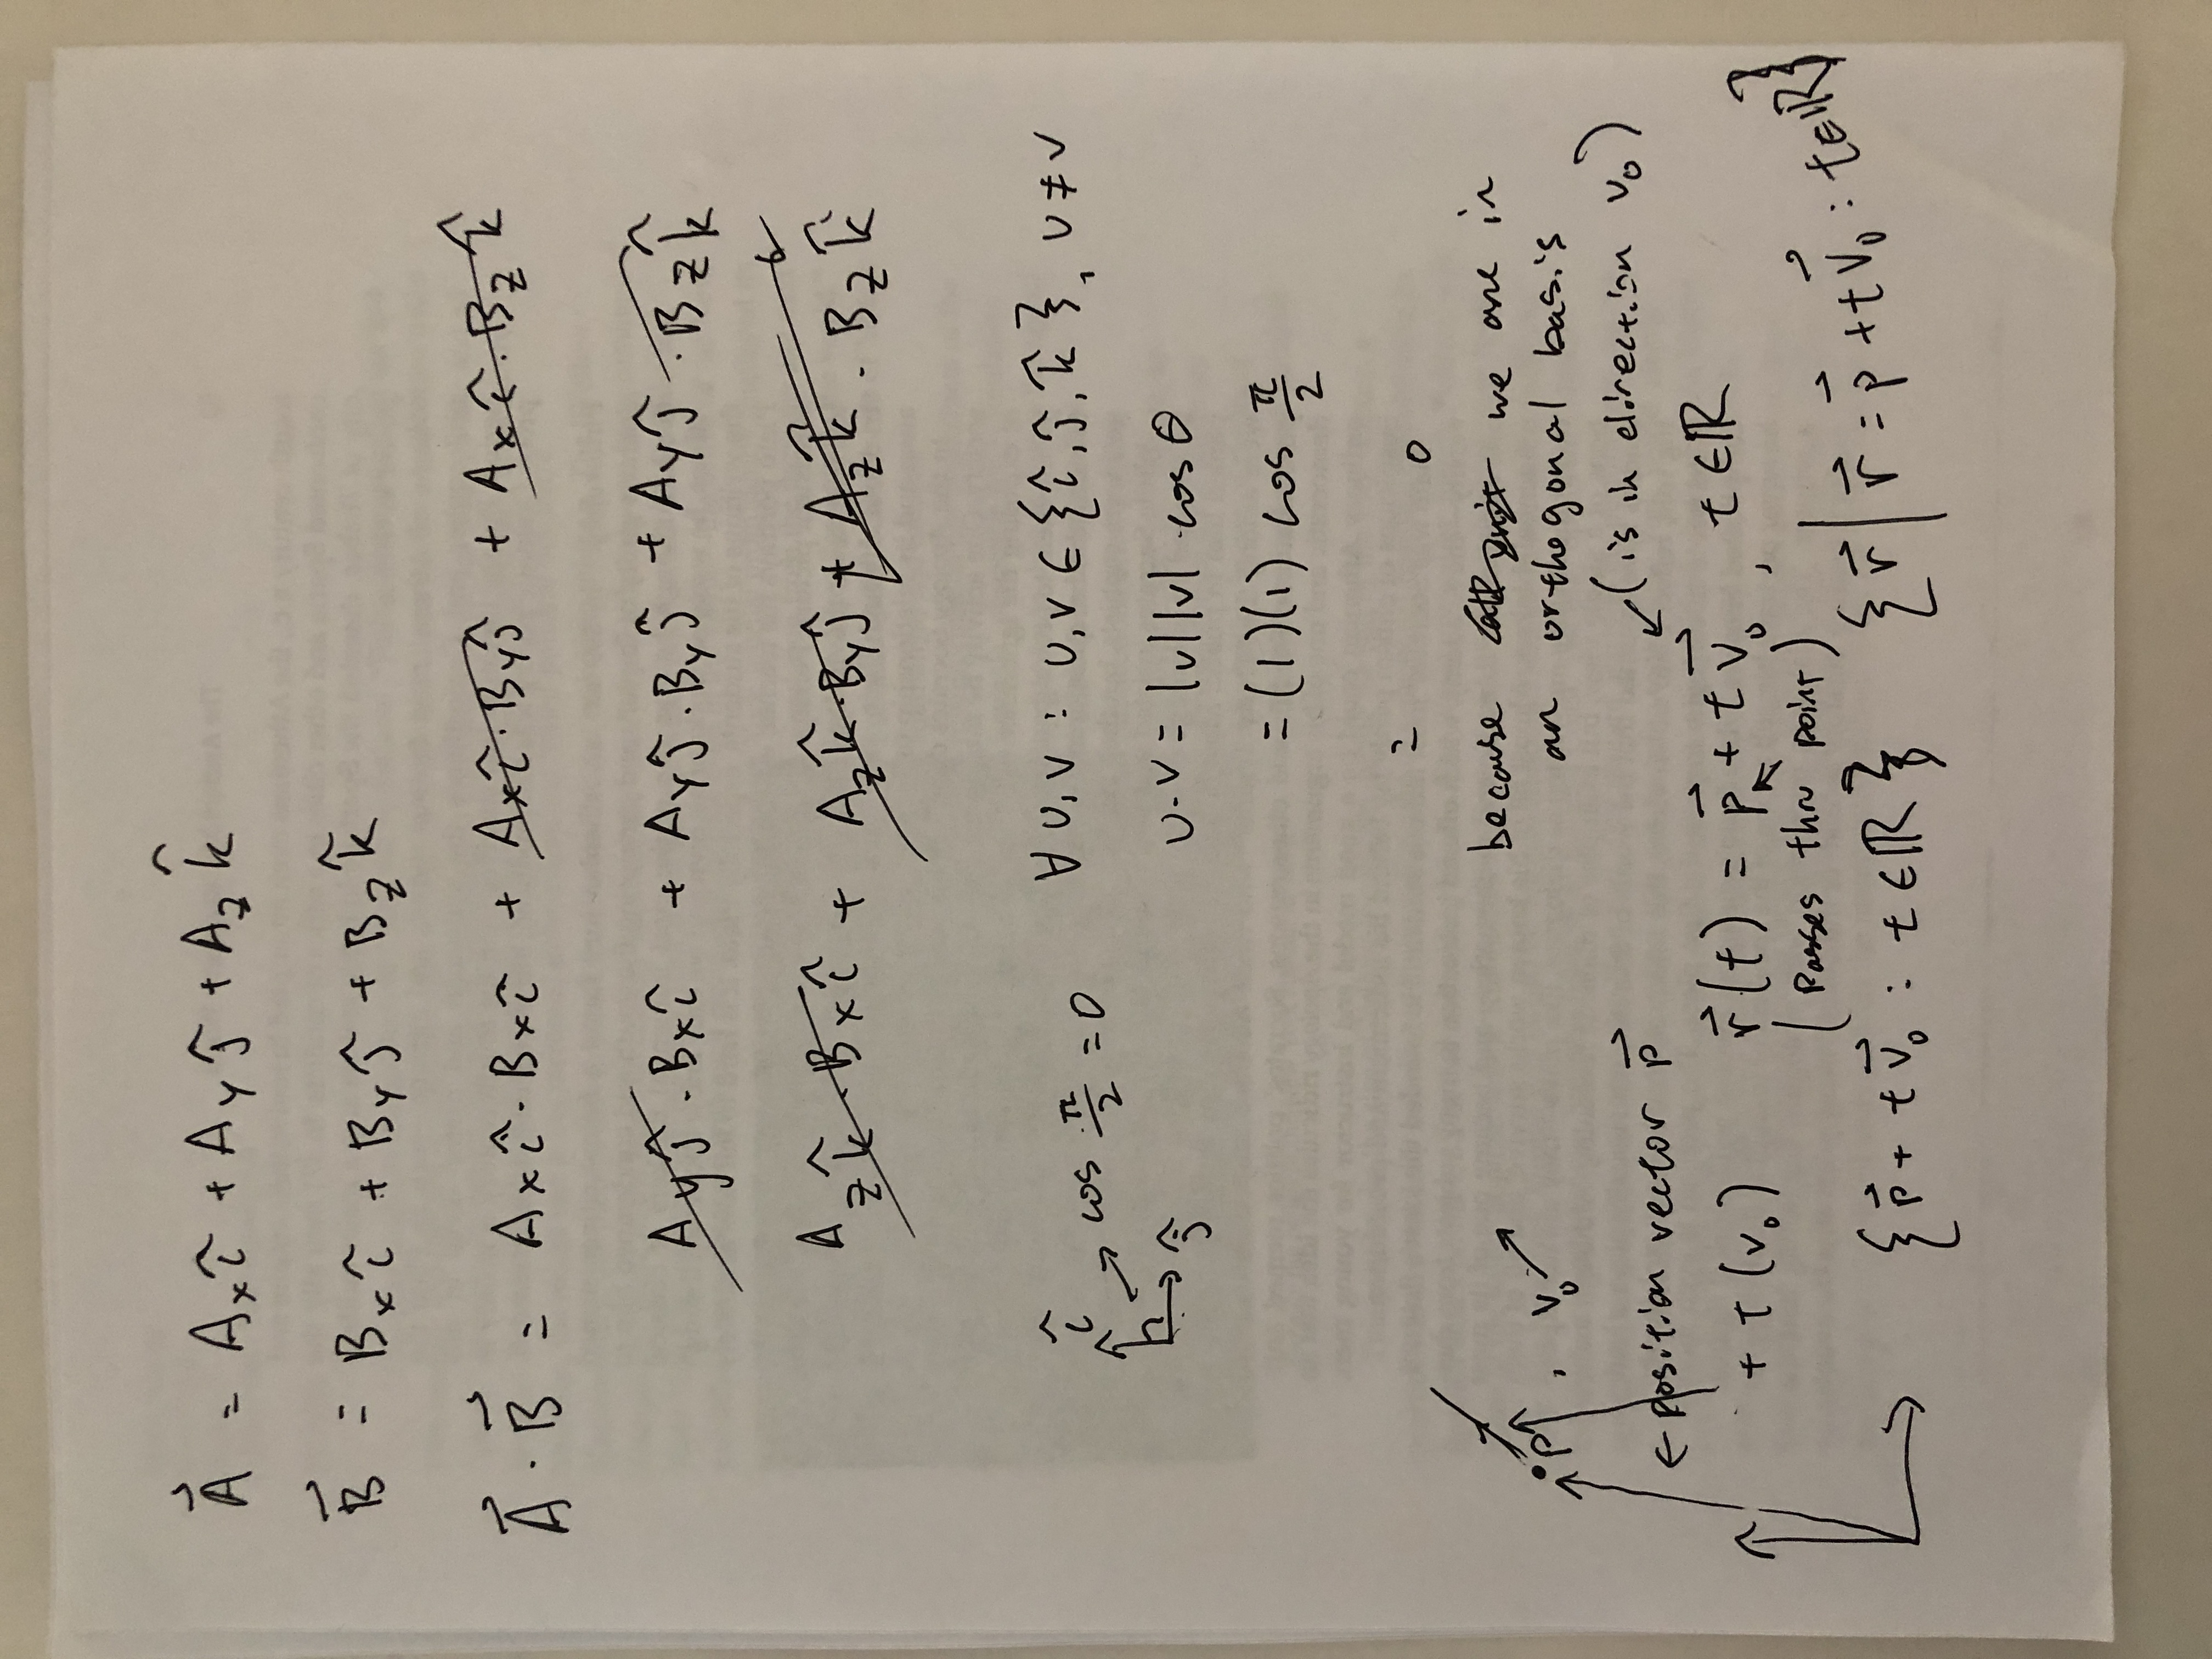 A⃗ = Aₓî + Aᵧĵ + A_z k̂
B⃗ = Bₓî + Bᵧĵ + B_z k̂
A⃗ · B⃗ = Aₓî · Bₓî + Aₓî · Bᵧĵ + Aₓî · B_z k̂
Aᵧĵ · Bₓî + Aᵧĵ · Bᵧĵ + Aᵧĵ · B_z k̂
A_z k̂ · Bₓî + A_z k̂ · Bᵧĵ + A_z k̂ · B_z k̂
î
cos π/2 = 0
ĵ
∀ u, v : u, v ∈ {î, ĵ, k̂}, u ≠ v
u · v = |v||v| · cos θ
= (1)(1) cos π/2
= 0
because we are in
an orthogonal basis
p , v₀
← position vector p⃗
+ t(v₀)
(is in direction v₀)
r⃗(t) = p⃗ + t v⃗₀ , t ∈ ℝ
(passes thru point)
{p⃗ + t v⃗₀ : t ∈ ℝ}
{r⃗ | r⃗ = p⃗ + t v⃗₀ : t ∈ ℝ}